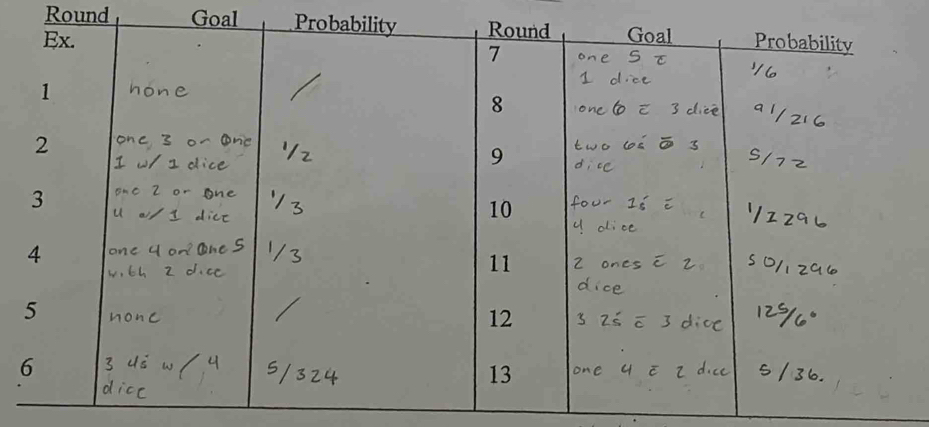 Round Goal Probability
Ex.
1 none /
2 one 3 or one 1/2
1 w/ 1 dice
3 one 2 or one 1/3
4 w/ 1 dice
4 one 4 or one 5 1/3
with 2 dice
5 none /
6 3 4s w/ 4 5/324
dice
Round Goal Probability
7 one 5 c̄ 1/6
1 dice
8 one 6 c̄ 3 dice 91/216
9 two 6s c̄ 3 5/72
dice
10 four 1s c̄ 1/1296
4 dice
11 2 ones c̄ 2 50/1296
dice
12 3 2s c̄ 3 dice 125/6⁶
13 one 4 c̄ 2 dice 5/36.